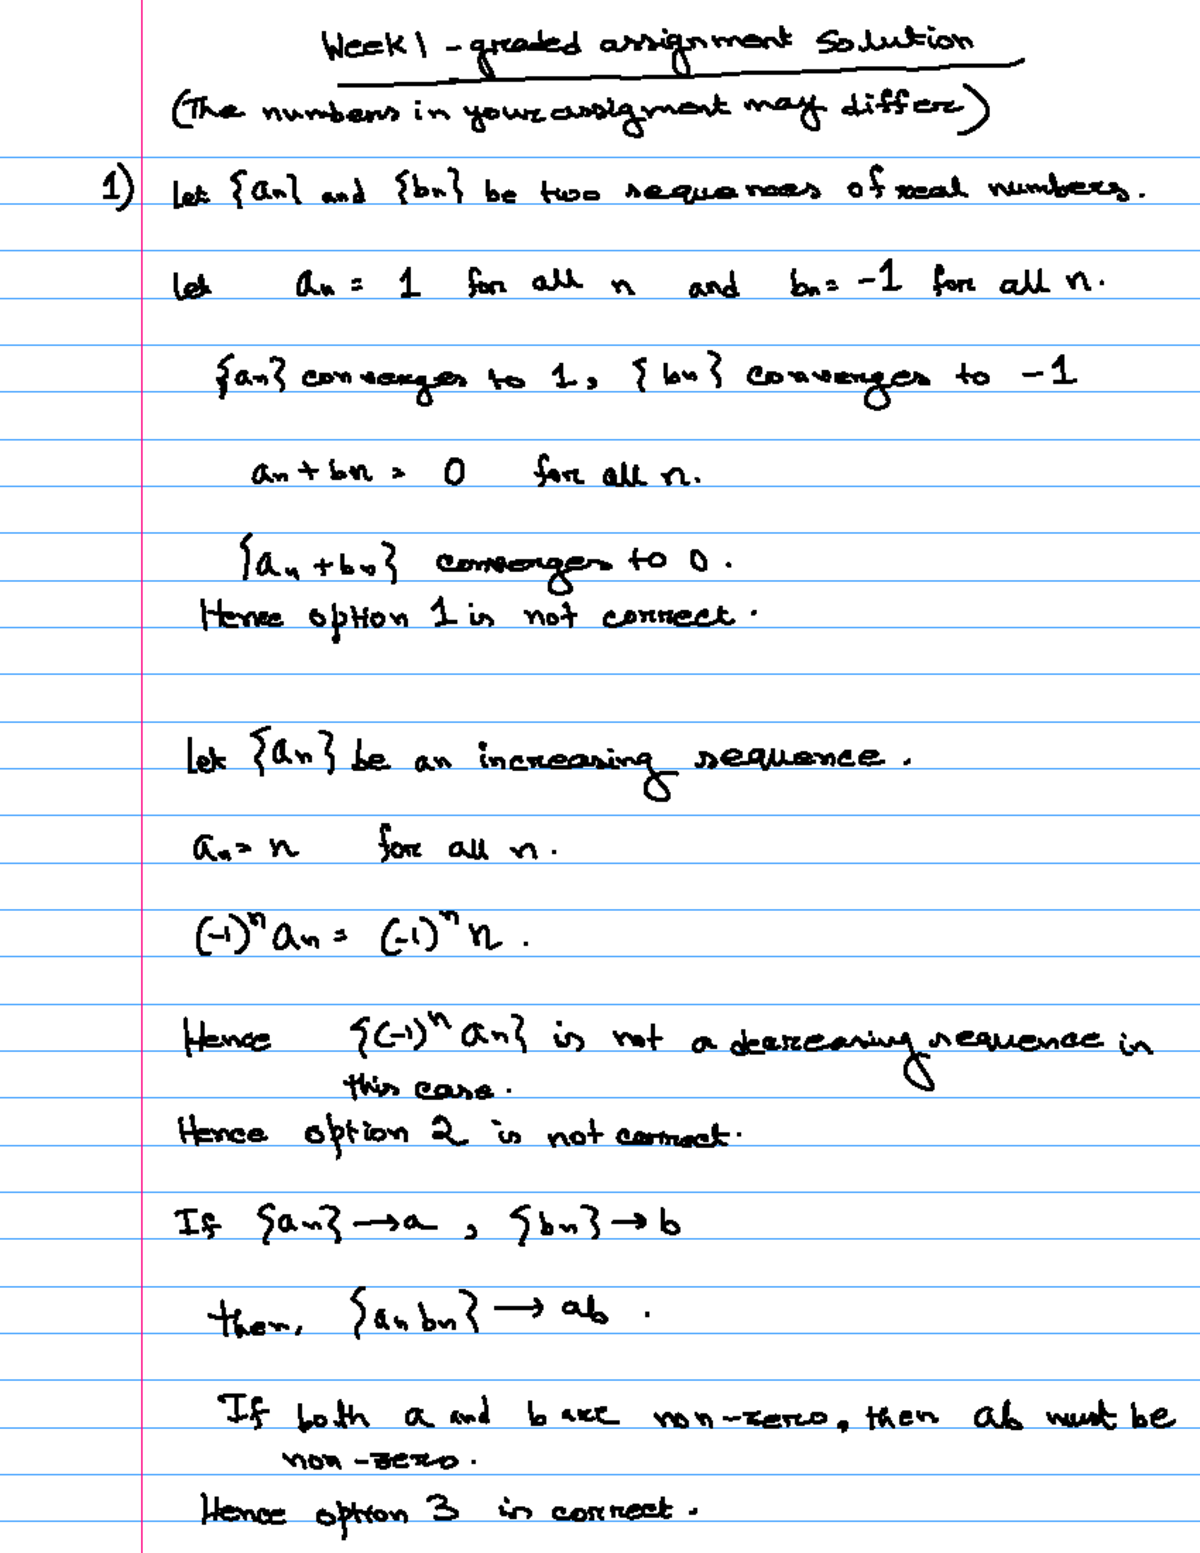 Week 1 - graded assignment Solution
(The numbers in your assigment may differ)
1) Let {an} and {bn} be two sequences of real numbers.
Let an = 1 for all n and bn = -1 for all n.
{an} converges to 1, {bn} converges to -1
an + bn = 0 for all n.
{an + bn} converges to 0.
Hence option 1 is not correct.
Let {an} be an increasing sequence.
an = n for all n.
(-1)^n an = (-1)^n n.
Hence {(-1)^n an} is not a decreasing sequence in
this case.
Hence option 2 is not correct.
If {an} → a, {bn} → b
then, {an bn} → ab.
If both a and b are non-zero, then ab must be
non-zero.
Hence option 3 is correct.